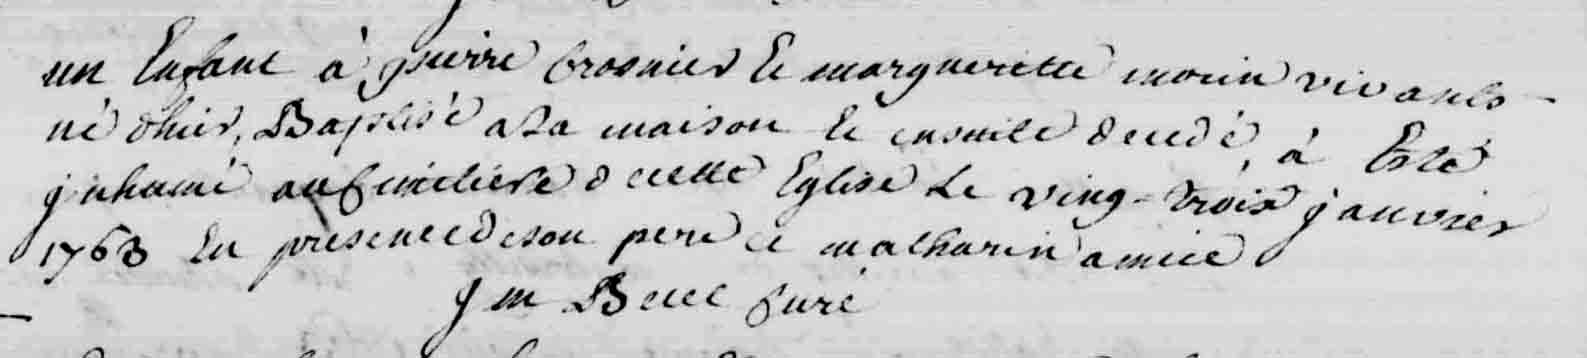 un Enfant à pierre Crosnier Et marguerette morin vivants
né d'hier, Baptisé a La maison Et ensuite decedé, à Esté
jnhumé au Cimetiere d cette Eglise Le ving-trois janvier
1763 En presence de son pere et mathurin amice
curé